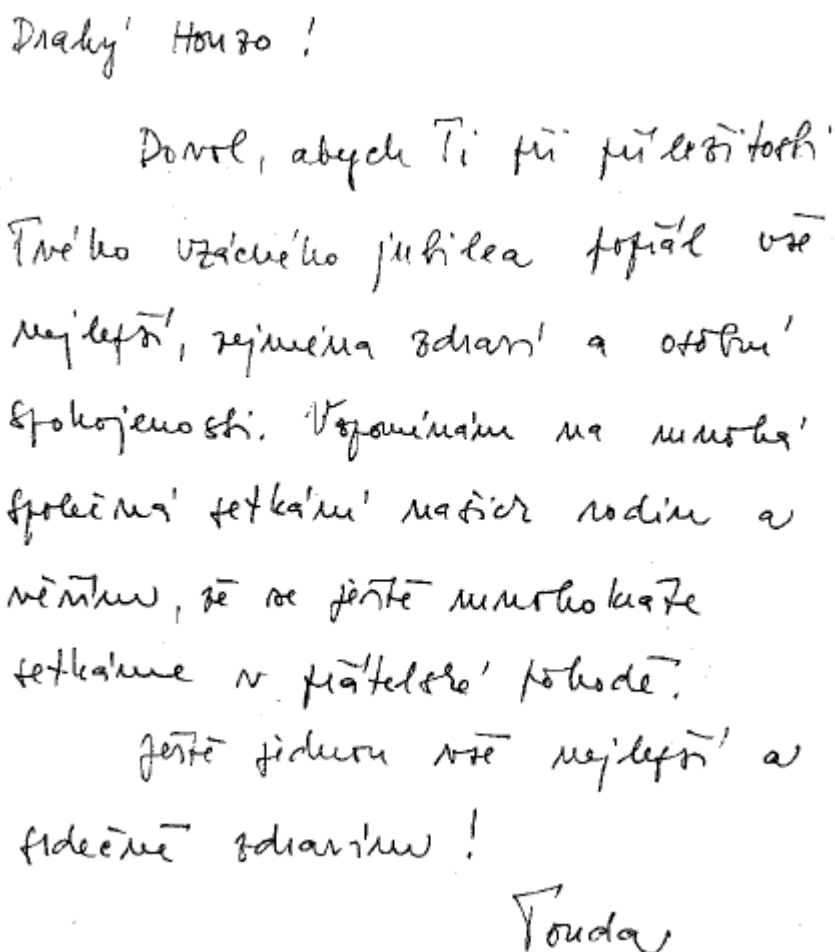 Drahý Honzo!
Dovol, abych Ti při příležitosti
Tvého vzácného jubilea popřál vše
nejlepší, zejména zdraví a osobní
spokojenosti. Vzpomínám na mnohá
společná setkání našich rodin a
věřím, že se ještě mnohokráte
setkáme v přátelské pohodě.
Ještě jednou vše nejlepší a
srdečně zdravím!
Tonda